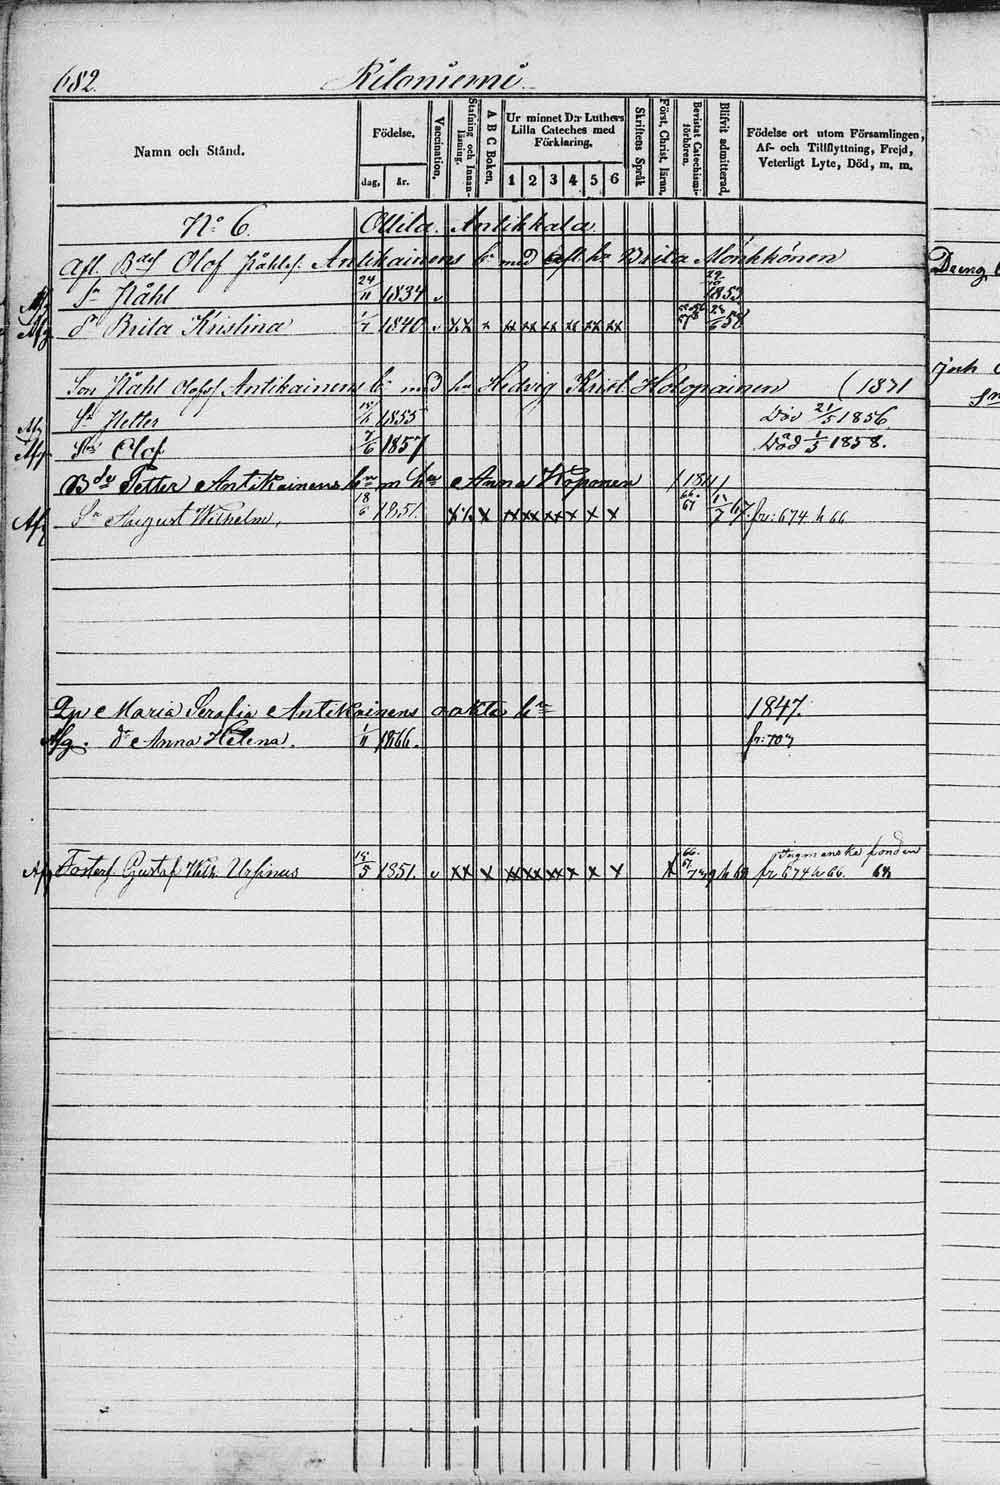 682. Ritoniemi
Namn och Stånd.
Födelse.
dag, år.
Vaccination.
Stafning och Innanläsning.
A B C Boken.
Ur minnet D:r Luthers Lilla Cateches med Förklaring.
1 2 3 4 5 6
Skriftens Språk
Först. Christ. läran.
Bevistat Catechismiförhören.
Blifvit admitterad.
Födelse ort utom Församlingen, Af- och Tillflyttning, Frejd, Veterligt Lyte, Död, m. m.
N:o 6. Ollila. Antikkala
Afl. Olof Påhlsf. Antikainens med Brita Mönkkönen
Sn Påhl 24/11 1834 1853
dr Brita Kristina 1/7 1840 v xx x xx xx xx xx xx xx 58
Son Påhl Olofsf Antikainens bn med hu Hedvig Krist. Holopainen (1831
Sn Petter 1855 Död 21/5 1856.
Sn Olof 7/6 1857 Död 1/5 1858.
Petter Antikainens bn m hu Anna Koponen
Sn August Wilhelm, 18/6 1851. xx x xx xx xx x x x 66. 67 1/7 67. fr: 674 h 66
Maria Serafia Antikainens oäkta bn 1847.
Afg. dr Anna Helena. 1/11 1866. fr: 707
Fosters Gustaf Wilh Ursinus 1851. v xx x xx xx xx x x x x 66. 67 fr 674 h 66.
Dreng